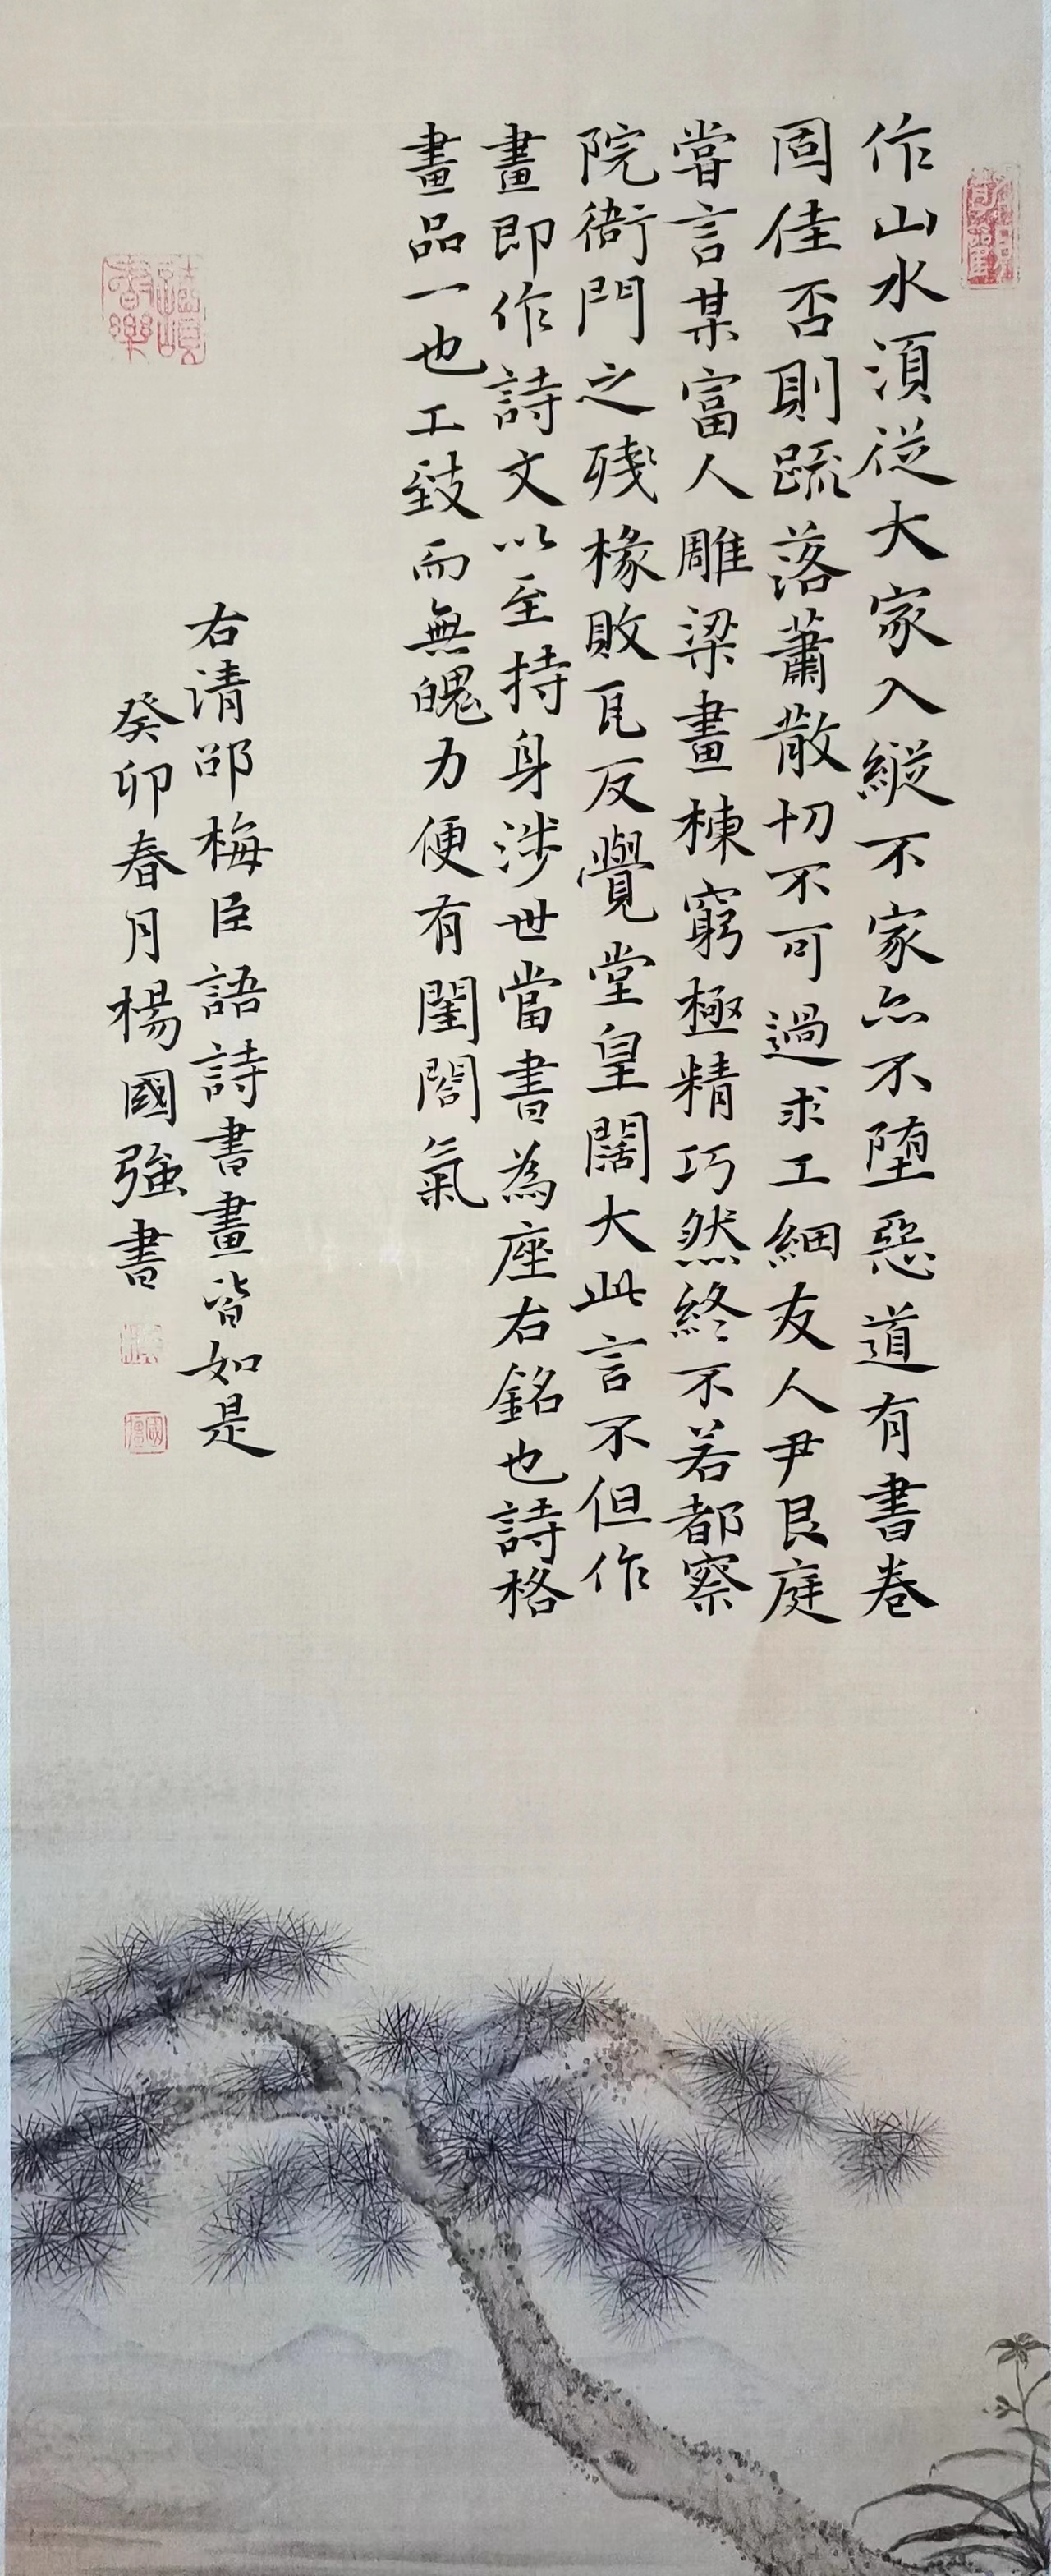 作山水須從大家入縱不家亦不墮惡道有書卷
固佳否則疏落蕭散切不可過求工細友人尹艮庭
嘗言某富人雕梁畫棟窮極精巧然終不若都察
院衙門之殘椽敗瓦反覺堂皇闊大此言不但作
畫即作詩文以至持身涉世當書為座右銘也詩格
畫品一也工致而無魄力便有閨閤氣
右清邵梅臣語詩書畫皆如是
癸卯春月楊國強書